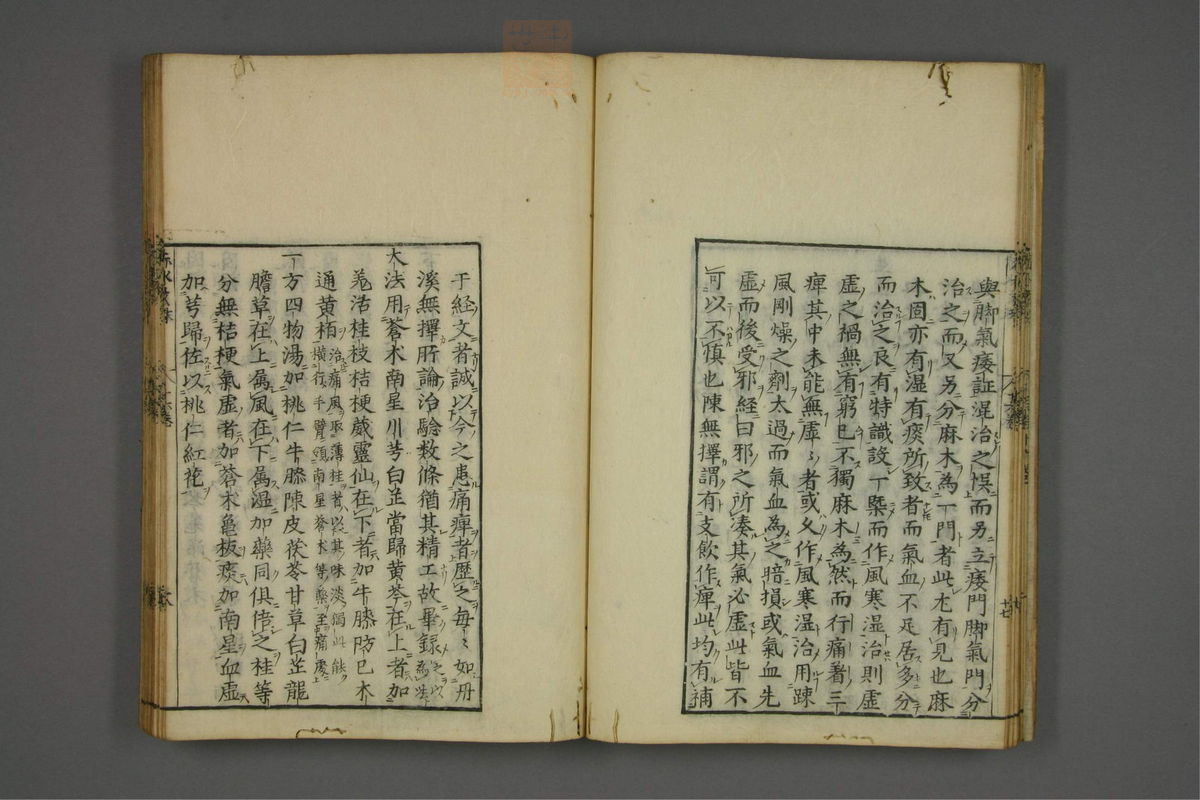 與脚氣痿証混治之悞而另立痿門脚氣門分
治之而又另分麻木為一門者此尤有見也麻
木固亦有湿有痰所致者而氣血不足居多分
而治之良有特識設一槩而作風寒湿治則虛
虛之禍無有窮已不獨麻木為然而行痛着三
痺其中未能無虛〻者或久作風寒湿治用踈
風剛燥之劑太過而氣血為之暗損或氣血先
虛而後受邪経曰邪之所湊其氣必虛此皆不
可以不慎也陳無擇謂有支飲作痺此均有補
于経文者誠以今之患痛痺者歷之每〻如丹
溪無擇所論治驗数條猶其精工故畢録
大法用蒼朮南星川芎白芷當歸黄芩在上者加
羗活桂枝桔梗葳靈仙在下者加牛膝防已木
通黄栢治痛風取薄桂者以其味淡獨此能
橫行手臂領南星蒼朮等藥至痛處
一方四物湯加桃仁牛膝陳皮茯苓甘草白芷龍
膽草在上属風在下属湿加藥同俱倍之桂等
分無桔梗氣虛者加蒼朮亀板痰加南星血虛
加芎歸佐以桃仁紅花